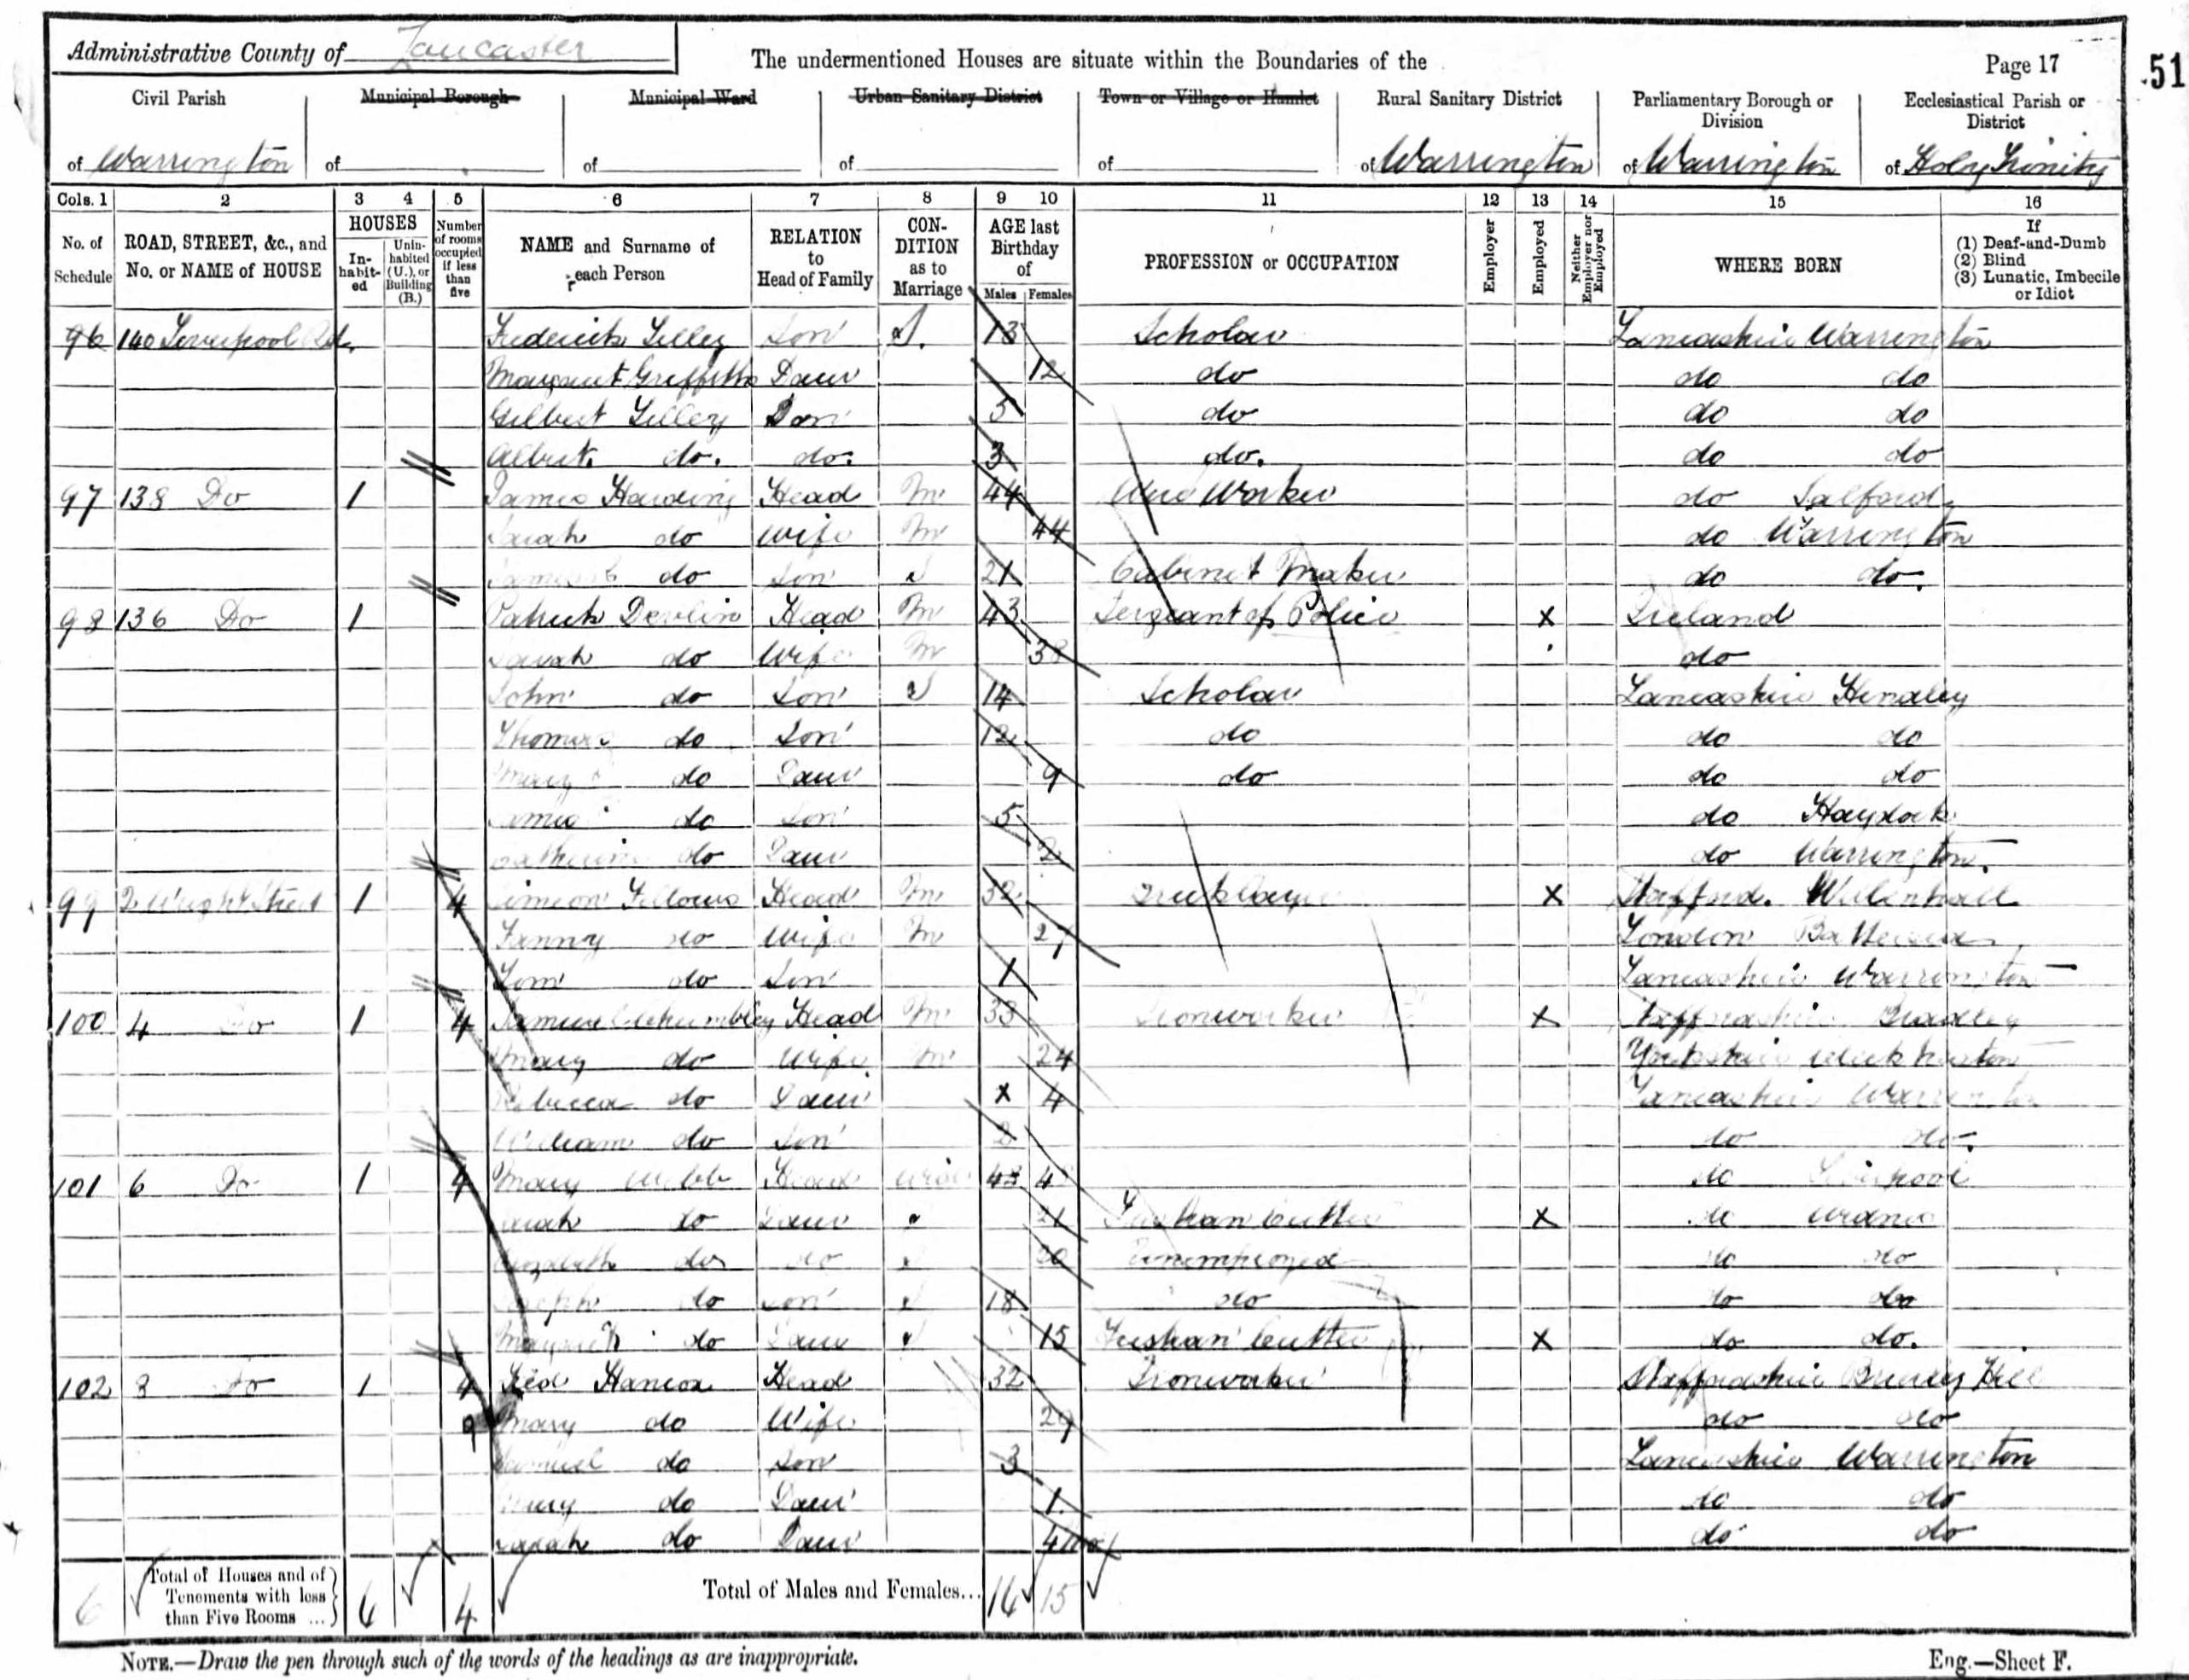 Administrative County of Lancaster
The undermentioned Houses are situate within the Boundaries of the
Page 17
51
Civil Parish
of Warrington
Municipal Borough
of
Municipal Ward
of
Urban Sanitary District
of
Town or Village or Hamlet
of
Rural Sanitary District
of Warrington
Parliamentary Borough or
Division
of Warrington
Ecclesiastical Parish or
District
of Holy Trinity
Cols. 1 2 3 4 5 6 7 8 9 10 11 12 13 14 15 16
No. of
Schedule
ROAD, STREET, &c., and
No. or NAME of HOUSE
HOUSES
In-
habit-
ed
Unin-
habited
(U.), or
Building
(B.)
Number
of rooms
occupied
if less
than
five
NAME and Surname of
each Person
RELATION
to
Head of Family
CON-
DITION
as to
Marriage
AGE last
Birthday
of
Males Females
PROFESSION or OCCUPATION
Employer
Employed
Neither
Employer nor
Employed
WHERE BORN
If
(1) Deaf-and-Dumb
(2) Blind
(3) Lunatic, Imbecile
or Idiot
96 140 Liverpool Rd. Frederick Son S. 13 Scholar Lancashire Warrington
Margaret Griffiths Daur 12 do do do
Gilbert Son 5 do do do
Albert do. do. 3 do. do do
97 138 Do 1 James Harding Head M 44 Wire Worker do Salford
Sarah do Wife M 44 do Warrington
do Son S 21 Cabinet Maker do do.
98 136 Do 1 Patrick Devlin Head M 43 Sergeant of Police x Ireland
Sarah do Wife M do
John do Son S 14 Scholar Lancashire Hindley
Thomas do Son 12 do do do
Mary do Daur 9 do do do
James do Son 5 do Haydock
Catherine do Daur 2 do Warrington.
99 2 Wright Street 1 4 Simeon Fellows Head M 32 Bricklayer x Stafford. Willenhall
Fanny do Wife M 27 London Battersea
Tom do Son 1 Lancashire Warrington
100 4 Do 1 4 Samuel Head M 33 Ironworker x Staffordshire Bradley
Mary do Wife M 24 Yorkshire Cleckheaton
Rebecca do Daur x 4 Lancashire Warrington
William do Son do do.
101 6 Do 1 4 Mary Webb Head Wid do Liverpool
Sarah do Daur S 21 Fustian Cutter x do Widnes
Elizabeth do do S 20 Unemployed do do
Joseph do Son S 18 do do do
Margaret do Daur S 15 Fustian Cutter x do do.
102 8 Do 1 4 Fred Hancox Head 32 Ironworker Staffordshire Brierley Hill
Mary do Wife 29 do do
Samuel do Son 3 Lancashire Warrington
Mary do Daur 1 do do
Sarah do Daur 4 mo do do
6 Total of Houses and of
Tenements with less
than Five Rooms ... 6 4 Total of Males and Females... 16 15
NOTE.—Draw the pen through such of the words of the headings as are inappropriate.
Eng.—Sheet F.